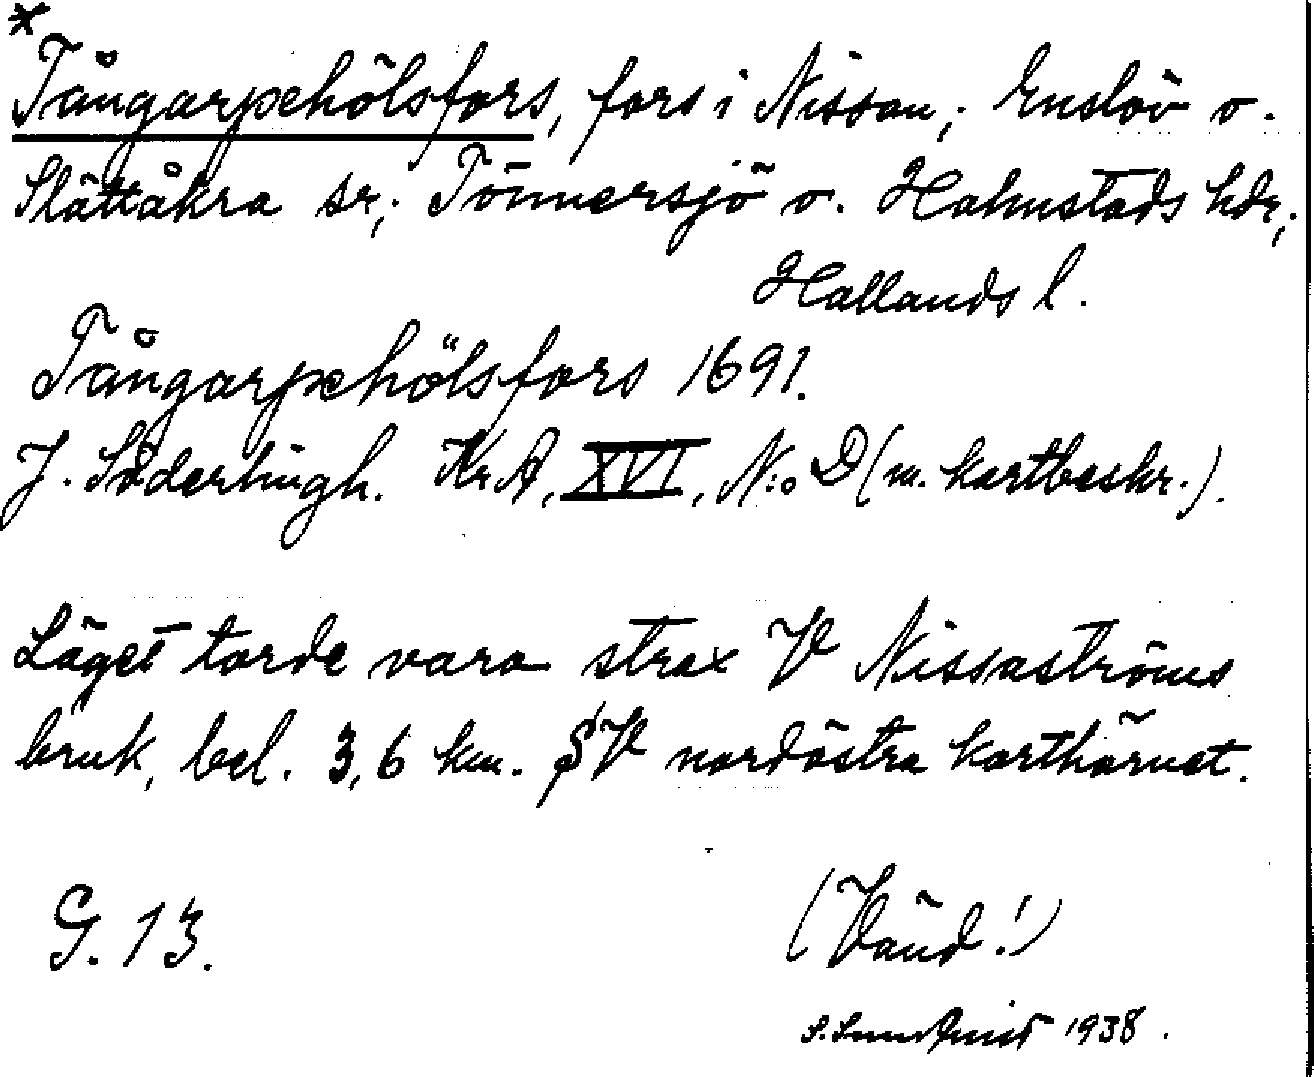 *
Tångarpehölsfors, fors i Nissan; Enslöv o.
Slättåkra sr; Tönnersjö o. Halmstads hdr;
Hallands l.
Tångarpehölsfors 1691.
J. Söderlingh. Kr A, XVI, N:o D (m. kartbeskr.).
Läget torde vara strax V Nissaströms
bruk, bel. 3,6 km. SV nordöstra karthörnet.
G. 13.
(Vänd!)
S. Sundqvist 1938.